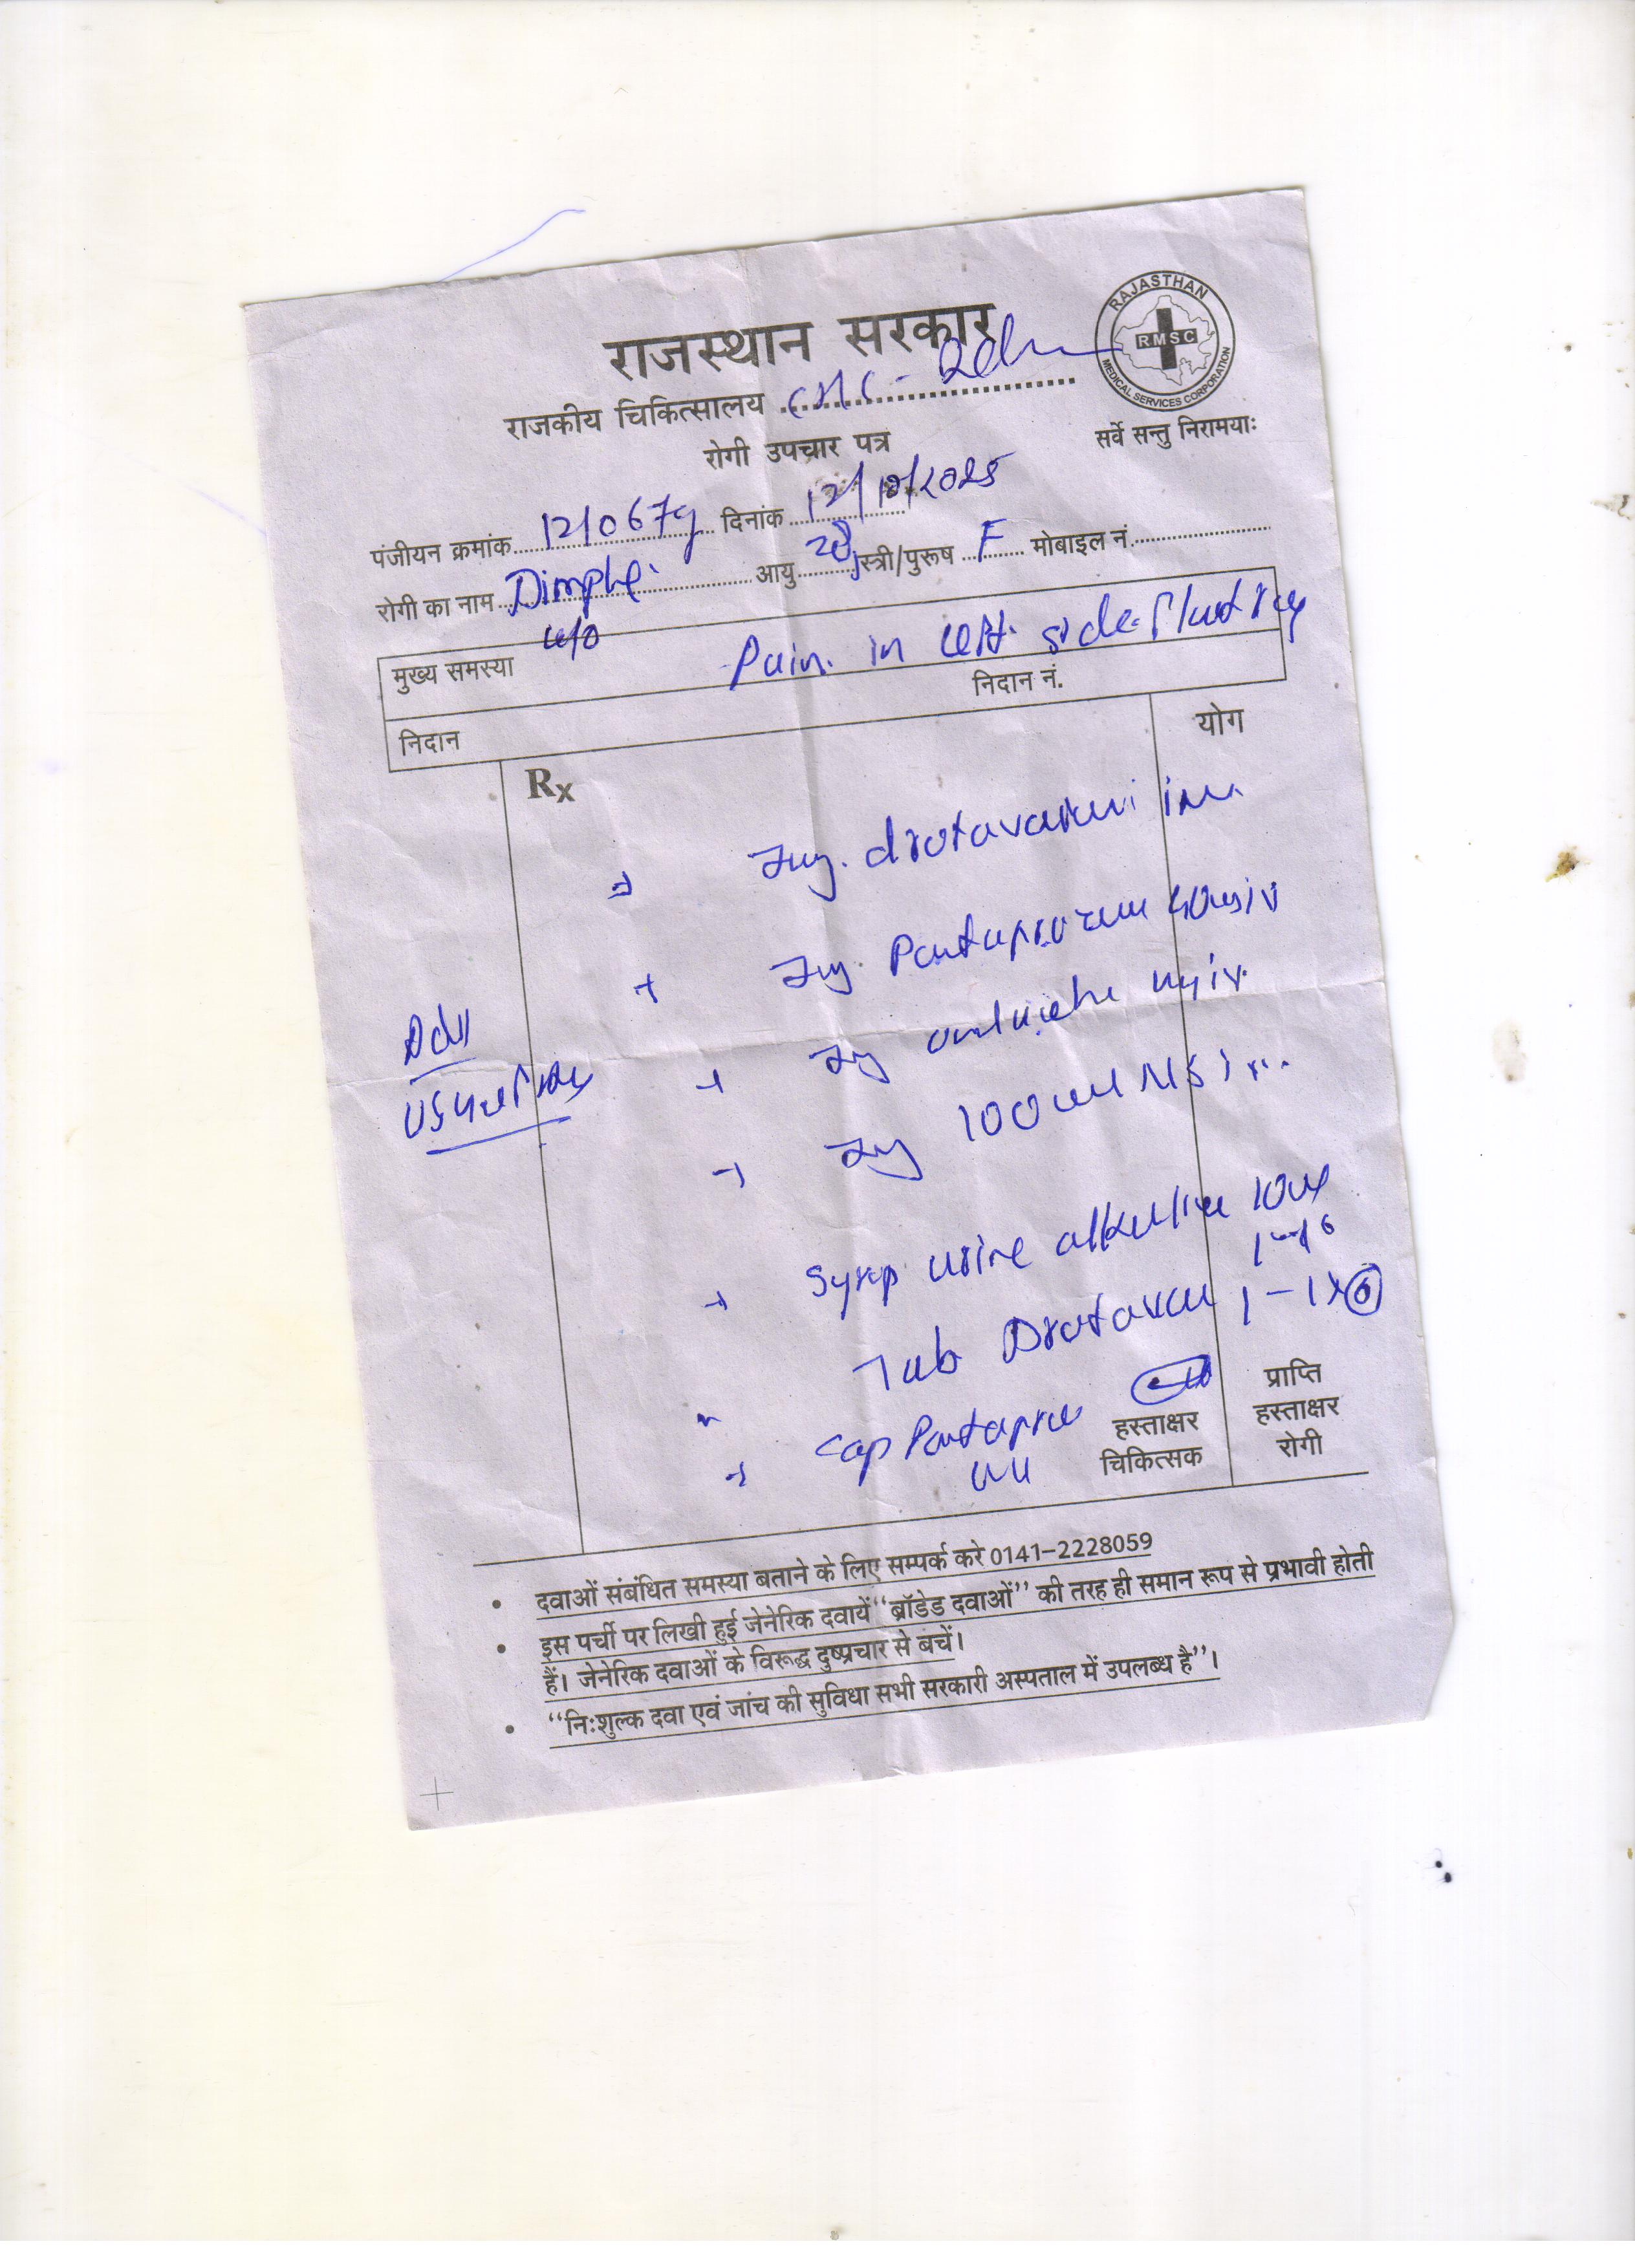 राजस्थान सरकार
RAJASTHAN
RMSC
MEDICAL SERVICES CORPORATION
राजकीय चिकित्सालय CHC -
सर्वे सन्तु निरामयाः
रोगी उपचार पत्र
पंजीयन क्रमांक 12/0679 दिनांक 12/10/2025
रोगी का नाम Dimple आयु स्त्री/पुरूष F मोबाइल नं.
मुख्य समस्या w/o Pain in left side
निदान निदान नं.
Rx योग
Inj. drotavarin im
Inj. Pantaprazole 40mg iv
Adv
Inj iv
Inj 100ml NS iv
Syrup urine alkaline 10ml
Tab Drotavarin 1-1x6
Cap Pantapra
हस्ताक्षर चिकित्सक
प्राप्ति हस्ताक्षर रोगी
• दवाओं संबंधित समस्या बताने के लिए सम्पर्क करे 0141-2228059
• इस पर्ची पर लिखी हुई जेनेरिक दवायें "ब्रॉडेड दवाओं" की तरह ही समान रूप से प्रभावी होती
हैं। जेनेरिक दवाओं के विरूद्ध दुष्प्रचार से बचें।
• "निःशुल्क दवा एवं जांच की सुविधा सभी सरकारी अस्पताल में उपलब्ध है"।